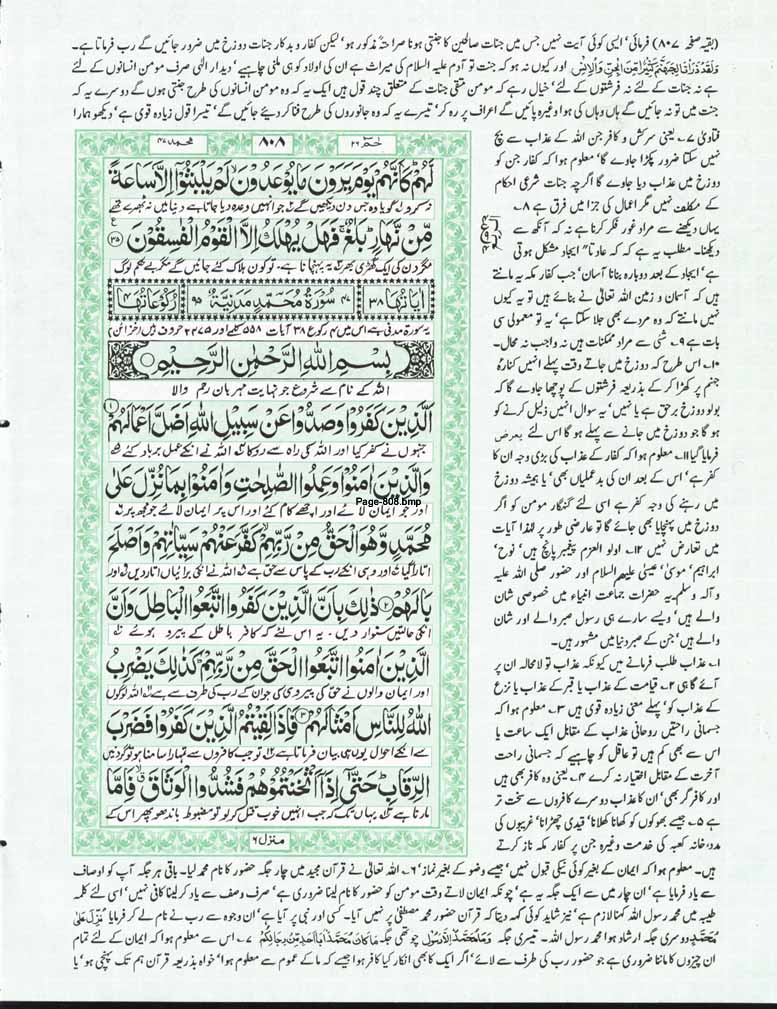 (بقیہ صفحہ ۸۰۷) فرمائی' ایسی کوئی آیت نہیں جس میں جنات صالحین کا جنتی ہونا صراحتہً مذکور ہو' لیکن کفار و بدکار جنات دوزخ میں ضرور جائیں گے رب فرماتا ہے۔
وَلَقَدْ ذَرَأْنَا لِجَهَنَّمَ كَثِيْرًا مِّنَ الْجِنِّ وَالْاِنْسِ اور کیوں نہ ہو کہ جنت تو آدم علیہ السلام کی میراث ہے ان کی اولاد کو ہی ملنی چاہیے' دیدار الٰہی صرف مومن انسانوں کے لئے
ہے نہ جنات کے لئے نہ فرشتوں کے لئے' خیال رہے کہ مومن متقی جنات کے متعلق چند قول ہیں ایک یہ کہ وہ مومن انسانوں کی طرح جنتی ہوں گے دوسرے یہ کہ
جنت میں تو نہ جائیں گے ہاں وہاں کی ہوا وغیرہ پائیں گے اعراف پر رہ کر' تیسرے یہ کہ وہ جانوروں کی طرح فنا کر دیئے جائیں گے' تیسرا قول زیادہ قوی ہے' دیکھو ہمارا
فتاویٰ ۷۔ یعنی سرکش و کافر جن اللہ کے عذاب سے بچ
نہیں سکتا ضرور پکڑا جاوے گا' معلوم ہوا کہ کفار جن کو
دوزخ میں عذاب دیا جاوے گا اگرچہ جنات شرعی احکام
کے مکلف نہیں مگر اعمال کی جزا میں فرق ہے ۸۔
یہاں دیکھنے سے مراد غور فکر کرنا ہے نہ کہ آنکھ سے
دیکھنا۔ مطلب یہ ہے کہ کہ عادتاً ایجاد مشکل ہوتی
ہے' ایجاد کے بعد دوبارہ بنانا آسان' جب کفار مکہ یہ مانتے
ہیں کہ آسمان و زمین اللہ تعالیٰ نے بنائے ہیں تو یہ کیوں
نہیں مانتے کہ وہ مردے بھی جلا سکتا ہے' یہ تو معمولی سی
بات ہے ۹۔ شئی سے مراد ممکنات ہیں نہ واجب نہ محال۔
۱۰۔ اس طرح کہ دوزخ میں جاتے وقت پہلے انہیں کنارۂ
جہنم پر کھڑا کر کے بذریعہ فرشتوں کے پوچھا جاوے گا کہ
بولو دوزخ برحق ہے یا نہیں' یہ سوال انہیں ذلیل کرنے کو
ہو گا جو دوزخ میں جانے سے پہلے ہو گا اس لئے یعرض
فرمایا گیا ۱۱۔ معلوم ہوا کہ کفار کے عذاب کی بڑی وجہ ان کا
کفر ہے' اس کے بعد ان کی بد عملیاں بھی' یا ہمیشہ دوزخ
میں رہنے کی وجہ کفر ہے اسی لئے گنہگار مومن کو اگر
دوزخ میں پہنچایا بھی جائے گا تو عارضی طور پر لہٰذا آیات
میں تعارض نہیں ۱۲۔ اولو العزم پیغمبر پانچ ہیں' نوح'
ابراہیم' موسیٰ' عیسیٰ علیہم السلام اور حضور صلی اللہ علیہ
و آلہ وسلم۔ یہ حضرات جماعت انبیاء میں خصوصی شان
والے ہیں' ویسے سارے ہی رسول صبر والے اور شان
والے ہیں' جن کے صبر دنیا میں مشہور ہیں۔
۱۔ عذاب طلب فرمانے میں کیونکہ عذاب تو لامحالہ ان پر
آئے گا ہی ۲۔ قیامت کے عذاب یا قبر کے عذاب یا نزع
کے عذاب کو' پہلے معنی زیادہ قوی ہیں ۳۔ معلوم ہوا کہ
جسمانی راحتیں روحانی عذاب کے مقابل ایک ساعت یا
اس سے بھی کم ہیں تو عاقل کو چاہیے کہ جسمانی راحت
آخرت کے مقابل اختیار نہ کرے ۴۔ یعنی وہ کافر بھی ہیں
اور کافر گر بھی' ان کا عذاب دوسرے کافروں سے سخت تر
ہے ۵۔ جیسے بھوکوں کو کھانا کھلانا' قیدی چھڑانا' غریبوں کی
مدد' خانہ کعبہ کی خدمت وغیرہ جن پر کفار مکہ ناز کرتے
حٰمٓ ۲۶
۸۰۸
محمد ۴۷
لَّهُمْ كَاَنَّهُمْ يَوْمَ يَرَوْنَ مَا يُوْعَدُوْنَ لَمْ يَلْبَثُوْۤا اِلَّا سَاعَةً
نہ کرو گویا وہ جس دن دیکھیں گے جو انہیں وعدہ دیا جاتا ہے دنیا میں نہ ٹھہرے تھے
مِّنْ نَّهَارٍ بَلٰغٌ فَهَلْ يُهْلَكُ اِلَّا الْقَوْمُ الْفٰسِقُوْنَ ۳۵
مگر دن کی ایک گھڑی بھر یہ پہنچانا ہے تو کون ہلاک کئے جائیں گے مگر بے حکم لوگ
اٰيَاتُهَا ۳۸ ۴۷ سُوْرَةُ مُحَمَّدٍ مَدَنِيَّةٌ ۹۵ رُكُوْعَاتُهَا ۴
یہ سورۃ مدنی ہے اس میں ۴ رکوع ۳۸ آیات ۵۵۸ کلمے اور ۲۴۷۵ حروف ہیں (خزائن)
بِسْمِ اللّٰهِ الرَّحْمٰنِ الرَّحِيْمِ
اللہ کے نام سے شروع جو نہایت مہربان رحم والا
اَلَّذِيْنَ كَفَرُوْا وَصَدُّوْا عَنْ سَبِيْلِ اللّٰهِ اَضَلَّ اَعْمَالَهُمْ ۱
جنہوں نے کفر کیا اور اللہ کی راہ سے روکا اللہ نے انکے عمل برباد کئے
وَالَّذِيْنَ اٰمَنُوْا وَعَمِلُوا الصّٰلِحٰتِ وَاٰمَنُوْا بِمَا نُزِّلَ عَلٰى
Page-808.bmp
اور جو ایمان لائے اور اچھے کام کئے اور اس پر ایمان لائے جو محمد پر
مُحَمَّدٍ وَّهُوَ الْحَقُّ مِنْ رَّبِّهِمْ كَفَّرَ عَنْهُمْ سَيِّاٰتِهِمْ وَاَصْلَحَ
اتارا گیا اور وہی انکے رب کے پاس سے حق ہے اللہ نے انکی برائیاں اتار دیں اور
بَالَهُمْ ۲ ذٰلِكَ بِاَنَّ الَّذِيْنَ كَفَرُوا اتَّبَعُوا الْبَاطِلَ وَاَنَّ
انکی حالتیں سنوار دیں۔ یہ اس لئے کہ کافر باطل کے پیرو ہوئے
الَّذِيْنَ اٰمَنُوا اتَّبَعُوا الْحَقَّ مِنْ رَّبِّهِمْ كَذٰلِكَ يَضْرِبُ
اور ایمان والوں نے حق کی پیروی کی جو ان کے رب کی طرف سے ہے اللہ لوگوں
اللّٰهُ لِلنَّاسِ اَمْثَالَهُمْ ۳ فَاِذَا لَقِيْتُمُ الَّذِيْنَ كَفَرُوْا فَضَرْبَ
سے انکے احوال یوں ہی بیان فرماتا ہے تو جب کافروں سے تمہارا سامنا ہو تو گردنیں
الرِّقَابِ حَتّٰۤى اِذَاۤ اَثْخَنْتُمُوْهُمْ فَشُدُّوا الْوَثَاقَ فَاِمَّا
مارنا ہے یہاں تک کہ جب انہیں خوب قتل کر لو تو مضبوط باندھو پھر اس کے
منزل ۶
ہیں۔ معلوم ہوا کہ ایمان کے بغیر کوئی نیکی قبول نہیں' جیسے وضو کے بغیر نماز' ۶۔ اللہ تعالیٰ نے قرآن مجید میں چار جگہ حضور کا نام محمد لیا۔ باقی ہر جگہ آپ کو اوصاف
سے یاد فرمایا ہے' ان چار میں سے ایک جگہ یہ ہے' چونکہ ایمان لاتے وقت مومن کو حضور کا نام لینا ضروری ہے' صرف وصف سے یاد کر لینا کافی نہیں' اسی لئے کلمہ
طیبہ میں محمد رسول اللہ کہنا لازم ہے' نیز شاید کوئی کہہ دیتا کہ قرآن حضور محمد مصطفیٰ پر نہیں آیا۔ کسی اور نبی پر آیا ہے' ان وجوہ سے رب نے نام لے کر فرمایا نُزِّلَ عَلٰی
مُحَمَّدٍ دوسری جگہ ارشاد ہوا محمد رسول اللہ۔ تیسری جگہ وَمَا مُحَمَّدٌ اِلَّا رَسُوْلٌ چوتھی جگہ مَا كَانَ مُحَمَّدٌ اَبَا اَحَدٍ مِّنْ رِّجَالِكُمْ ۷۔ اس سے معلوم ہوا کہ ایمان کے لئے تمام
ان چیزوں کا ماننا ضروری ہے جو حضور رب کی طرف سے لائے' اگر ایک کا بھی انکار کیا کافر ہوا جیسے کہ ما کے عموم سے معلوم ہوا' خواہ بذریعہ قرآن ہم تک پہنچی ہو' یا